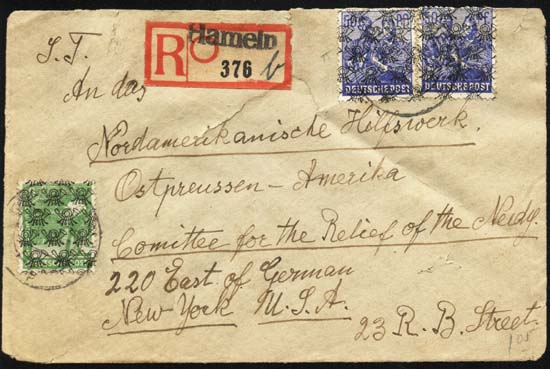 S.T.
R Hameln
376 b
DEUTSCHE POST DEUTSCHE POST
An das
Nordamerikanische Hilfswerk.
Ostpreussen - Amerika
Comittee for the Relief of the Neidy.
220 East of German
New York U.S.A.
23 R. B. Street.
DEUTSCHE POST